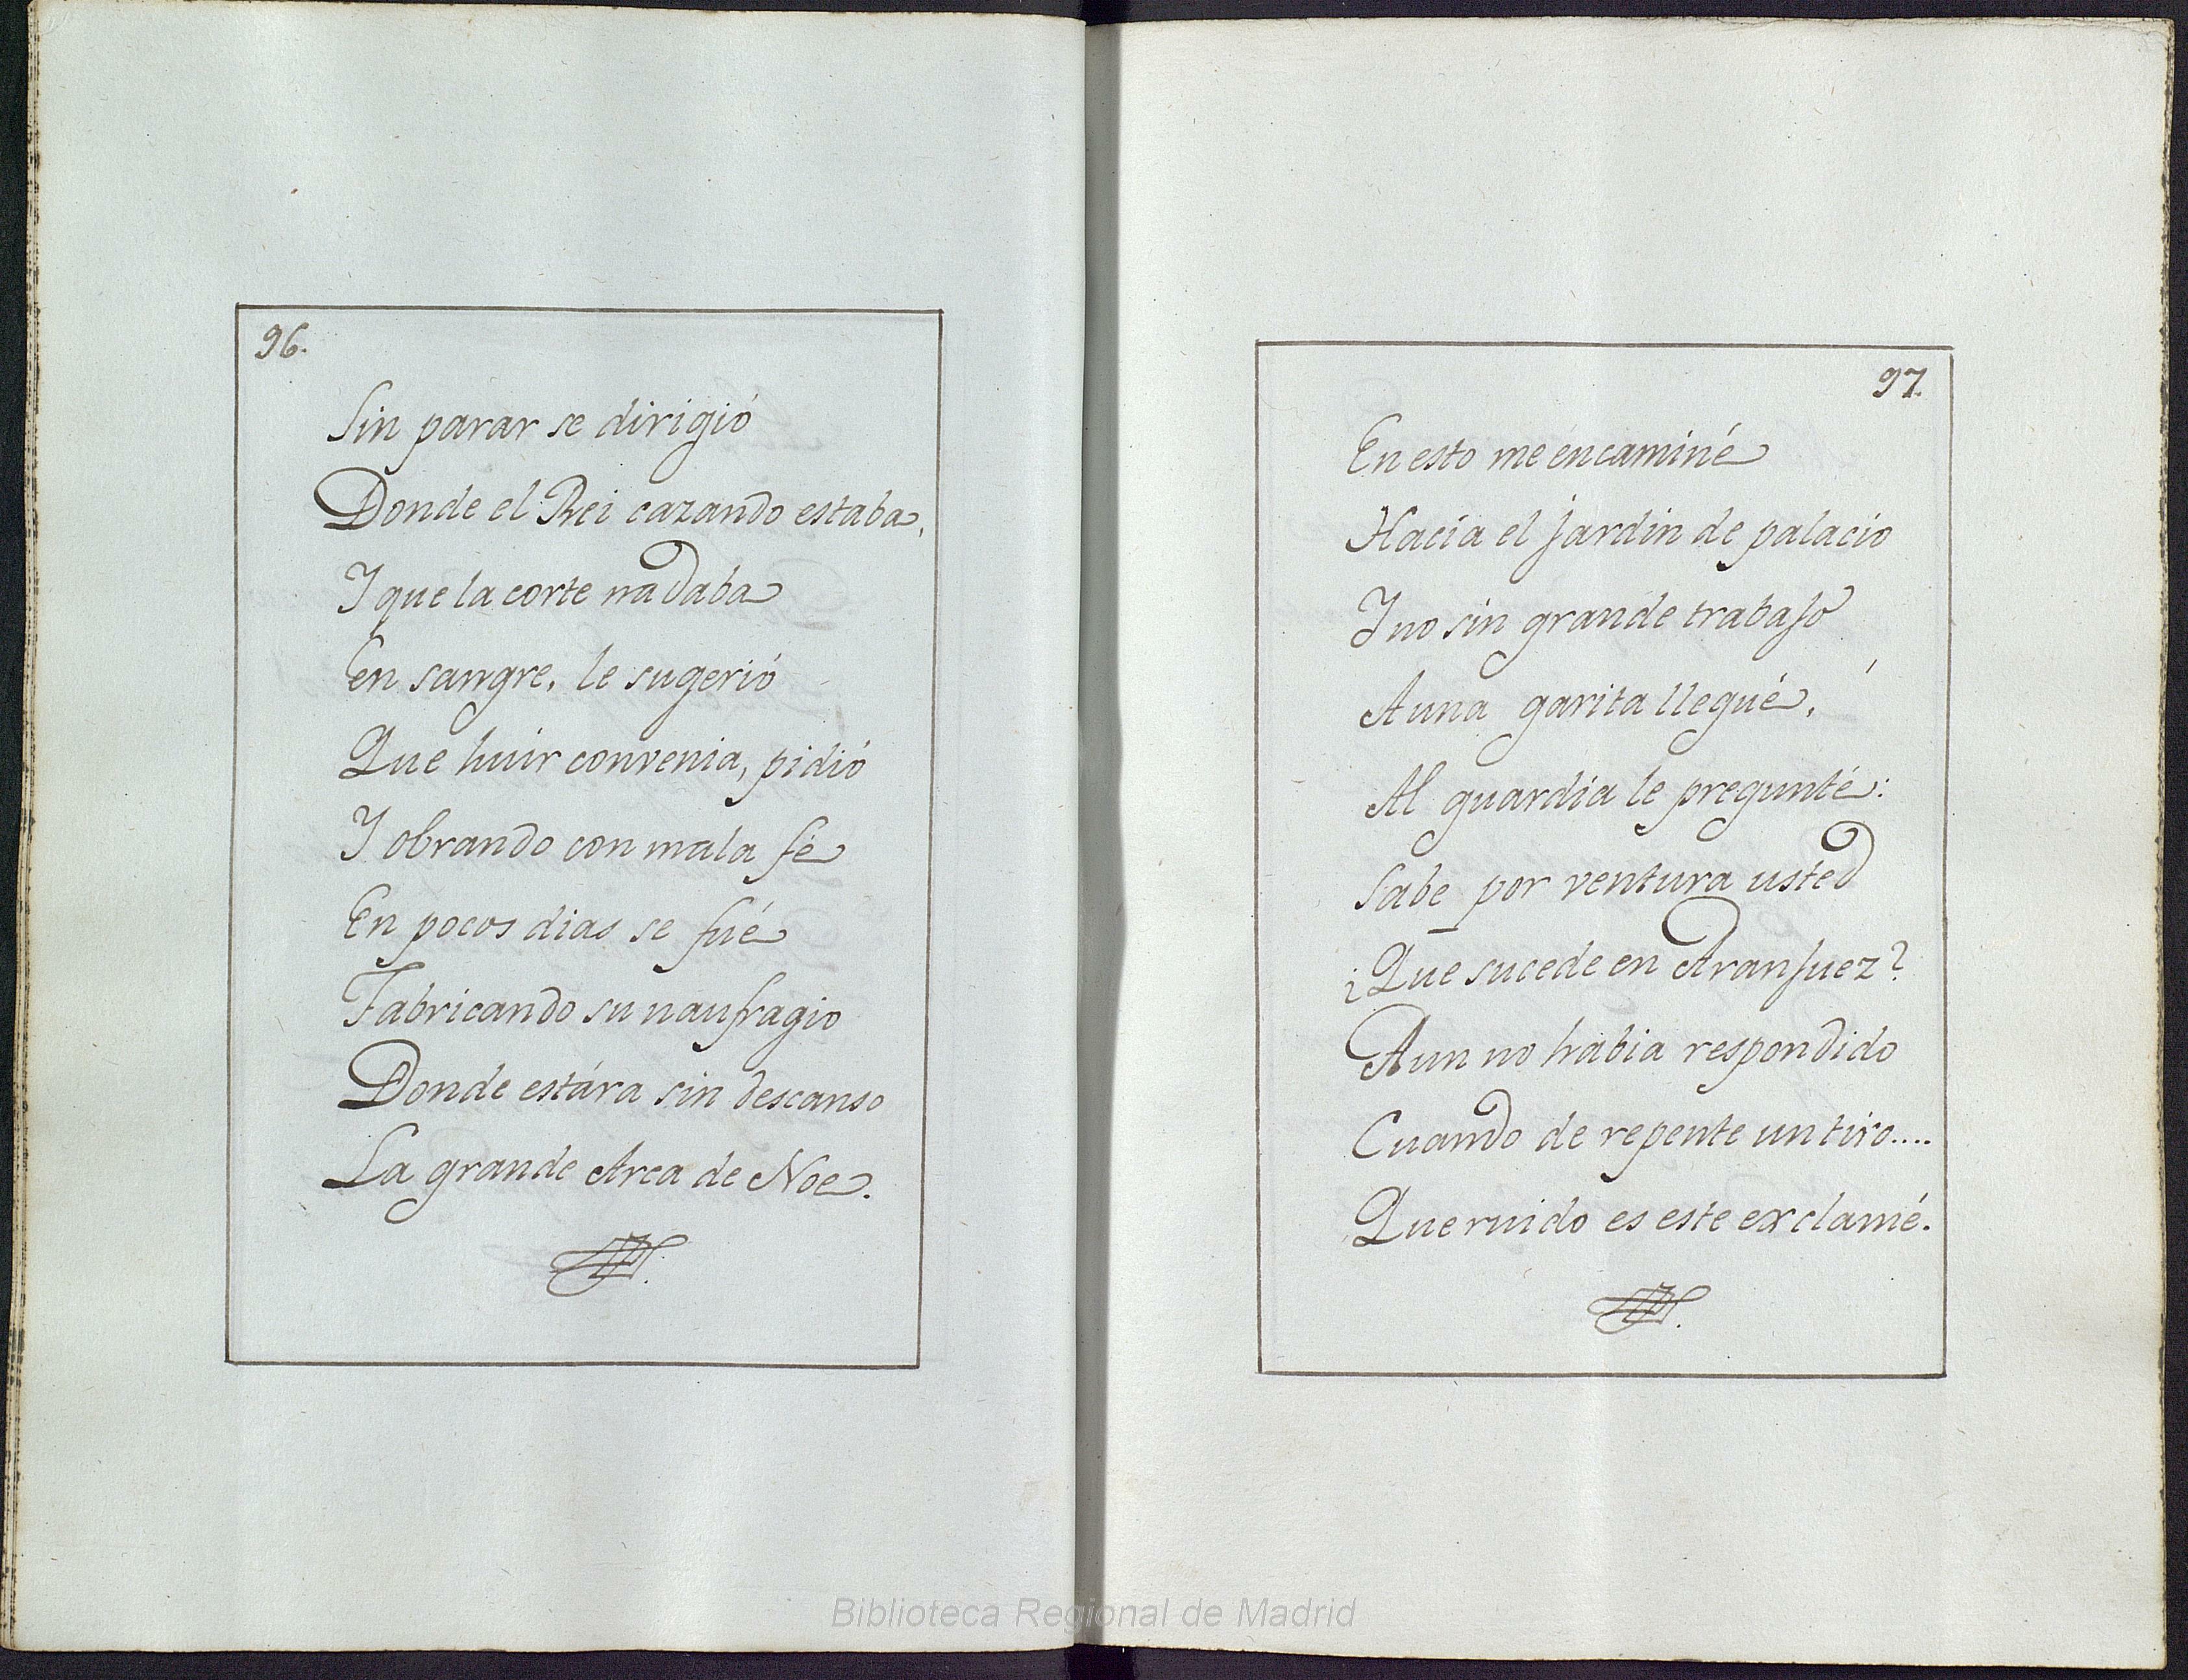 96.
Sin parar se dirigió
Donde el Rei cazando estaba,
I que la corte nadaba
En sangre, le sugerió
Que huir convenia, pidió
I obrando con mala fé
En pocos dias se fué
Fabricando su naufragio
Donde estára sin descanso
La grande Arca de Noe.
97.
En esto me encaminé
Hacia el jardin de palacio
I no sin grande trabajo
A una garita llegué,
Al guardia le pregunté:
Sabe por ventura usted
¿Que sucede en Aranjuez?
Aun no habia respondido
Cuando de repente un tiro....
Que ruido es este exclamé.
Biblioteca Regional de Madrid